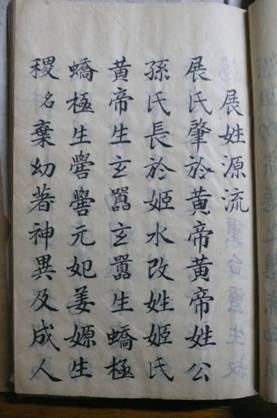 展姓源流
展氏肇於黄帝黄帝姓公
孫氏長於姬水改姓姬氏
黄帝生玄囂玄囂生蟜極
蟜極生嚳嚳元妃姜嫄生
稷名棄幼著神異及成人